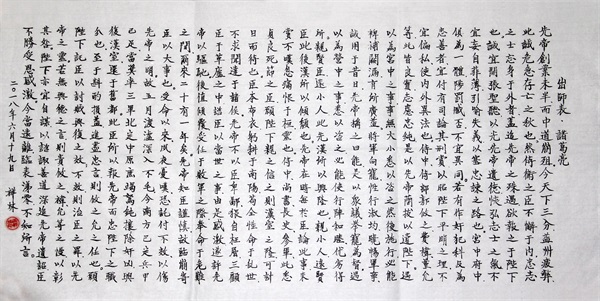 出師表 諸葛亮
先帝創業未半而中道崩殂今天下三分益州疲弊
此誠危急存亡之秋也然侍衛之臣不懈于內忠志
之士忘身于外者蓋追先帝之殊遇欲報之于陛下
也誠宜開張聖聽以光先帝遺德恢弘志士之氣不
宜妄自菲薄引喻失義以塞忠諫之路也宮中府中
俱為一體陟罰臧否不宜異同若有作奸犯科及為
忠善者宜付有司論其刑賞以昭陛下平明之理不
宜偏私使內外異法也侍中侍郎郭攸之費禕董允
等此皆良實志慮忠純是以先帝簡拔以遺陛下愚
以為宮中之事事無大小悉以咨之然後施行必能
裨補闕漏有所廣益將軍向寵性行淑均曉暢軍事
試用于昔日先帝稱之曰能是以眾議舉寵為督愚
以為營中之事悉以咨之必能使行陣和睦優劣得
所親賢臣遠小人此先漢所以興隆也親小人遠賢
臣此後漢所以傾頹也先帝在時每與臣論此事未
嘗不嘆息痛恨于桓靈也侍中尚書長史參軍此悉
貞良死節之臣願陛下親之信之則漢室之隆可計
日而待也臣本布衣躬耕于南陽苟全性命于亂世
不求聞達于諸侯先帝不以臣卑鄙猥自枉屈三顧
臣于草廬之中咨臣以當世之事由是感激遂許先
帝以驅馳後值傾覆受任于敗軍之際奉命于危難
之間爾來二十有一年矣先帝知臣謹慎故臨崩寄
臣以大事也受命以來夙夜憂嘆恐託付不效以傷
先帝之明故五月渡瀘深入不毛今南方已定兵甲
已足當獎率三軍北定中原庶竭駑鈍攘除奸凶興
復漢室還于舊都此臣所以報先帝而忠陛下之職
分也至于斟酌損益進盡忠言則攸之禕允之任也願
陛下託臣以討賊興復之效不效則治臣之罪以告先
帝之靈若無興德之言則責攸之禕允等之慢以彰
其咎陛下亦宜自謀以諮諏善道深追先帝遺詔臣
不勝受恩感激今當遠離臨表涕零不知所言
二〇一八年六月十九日 祥林